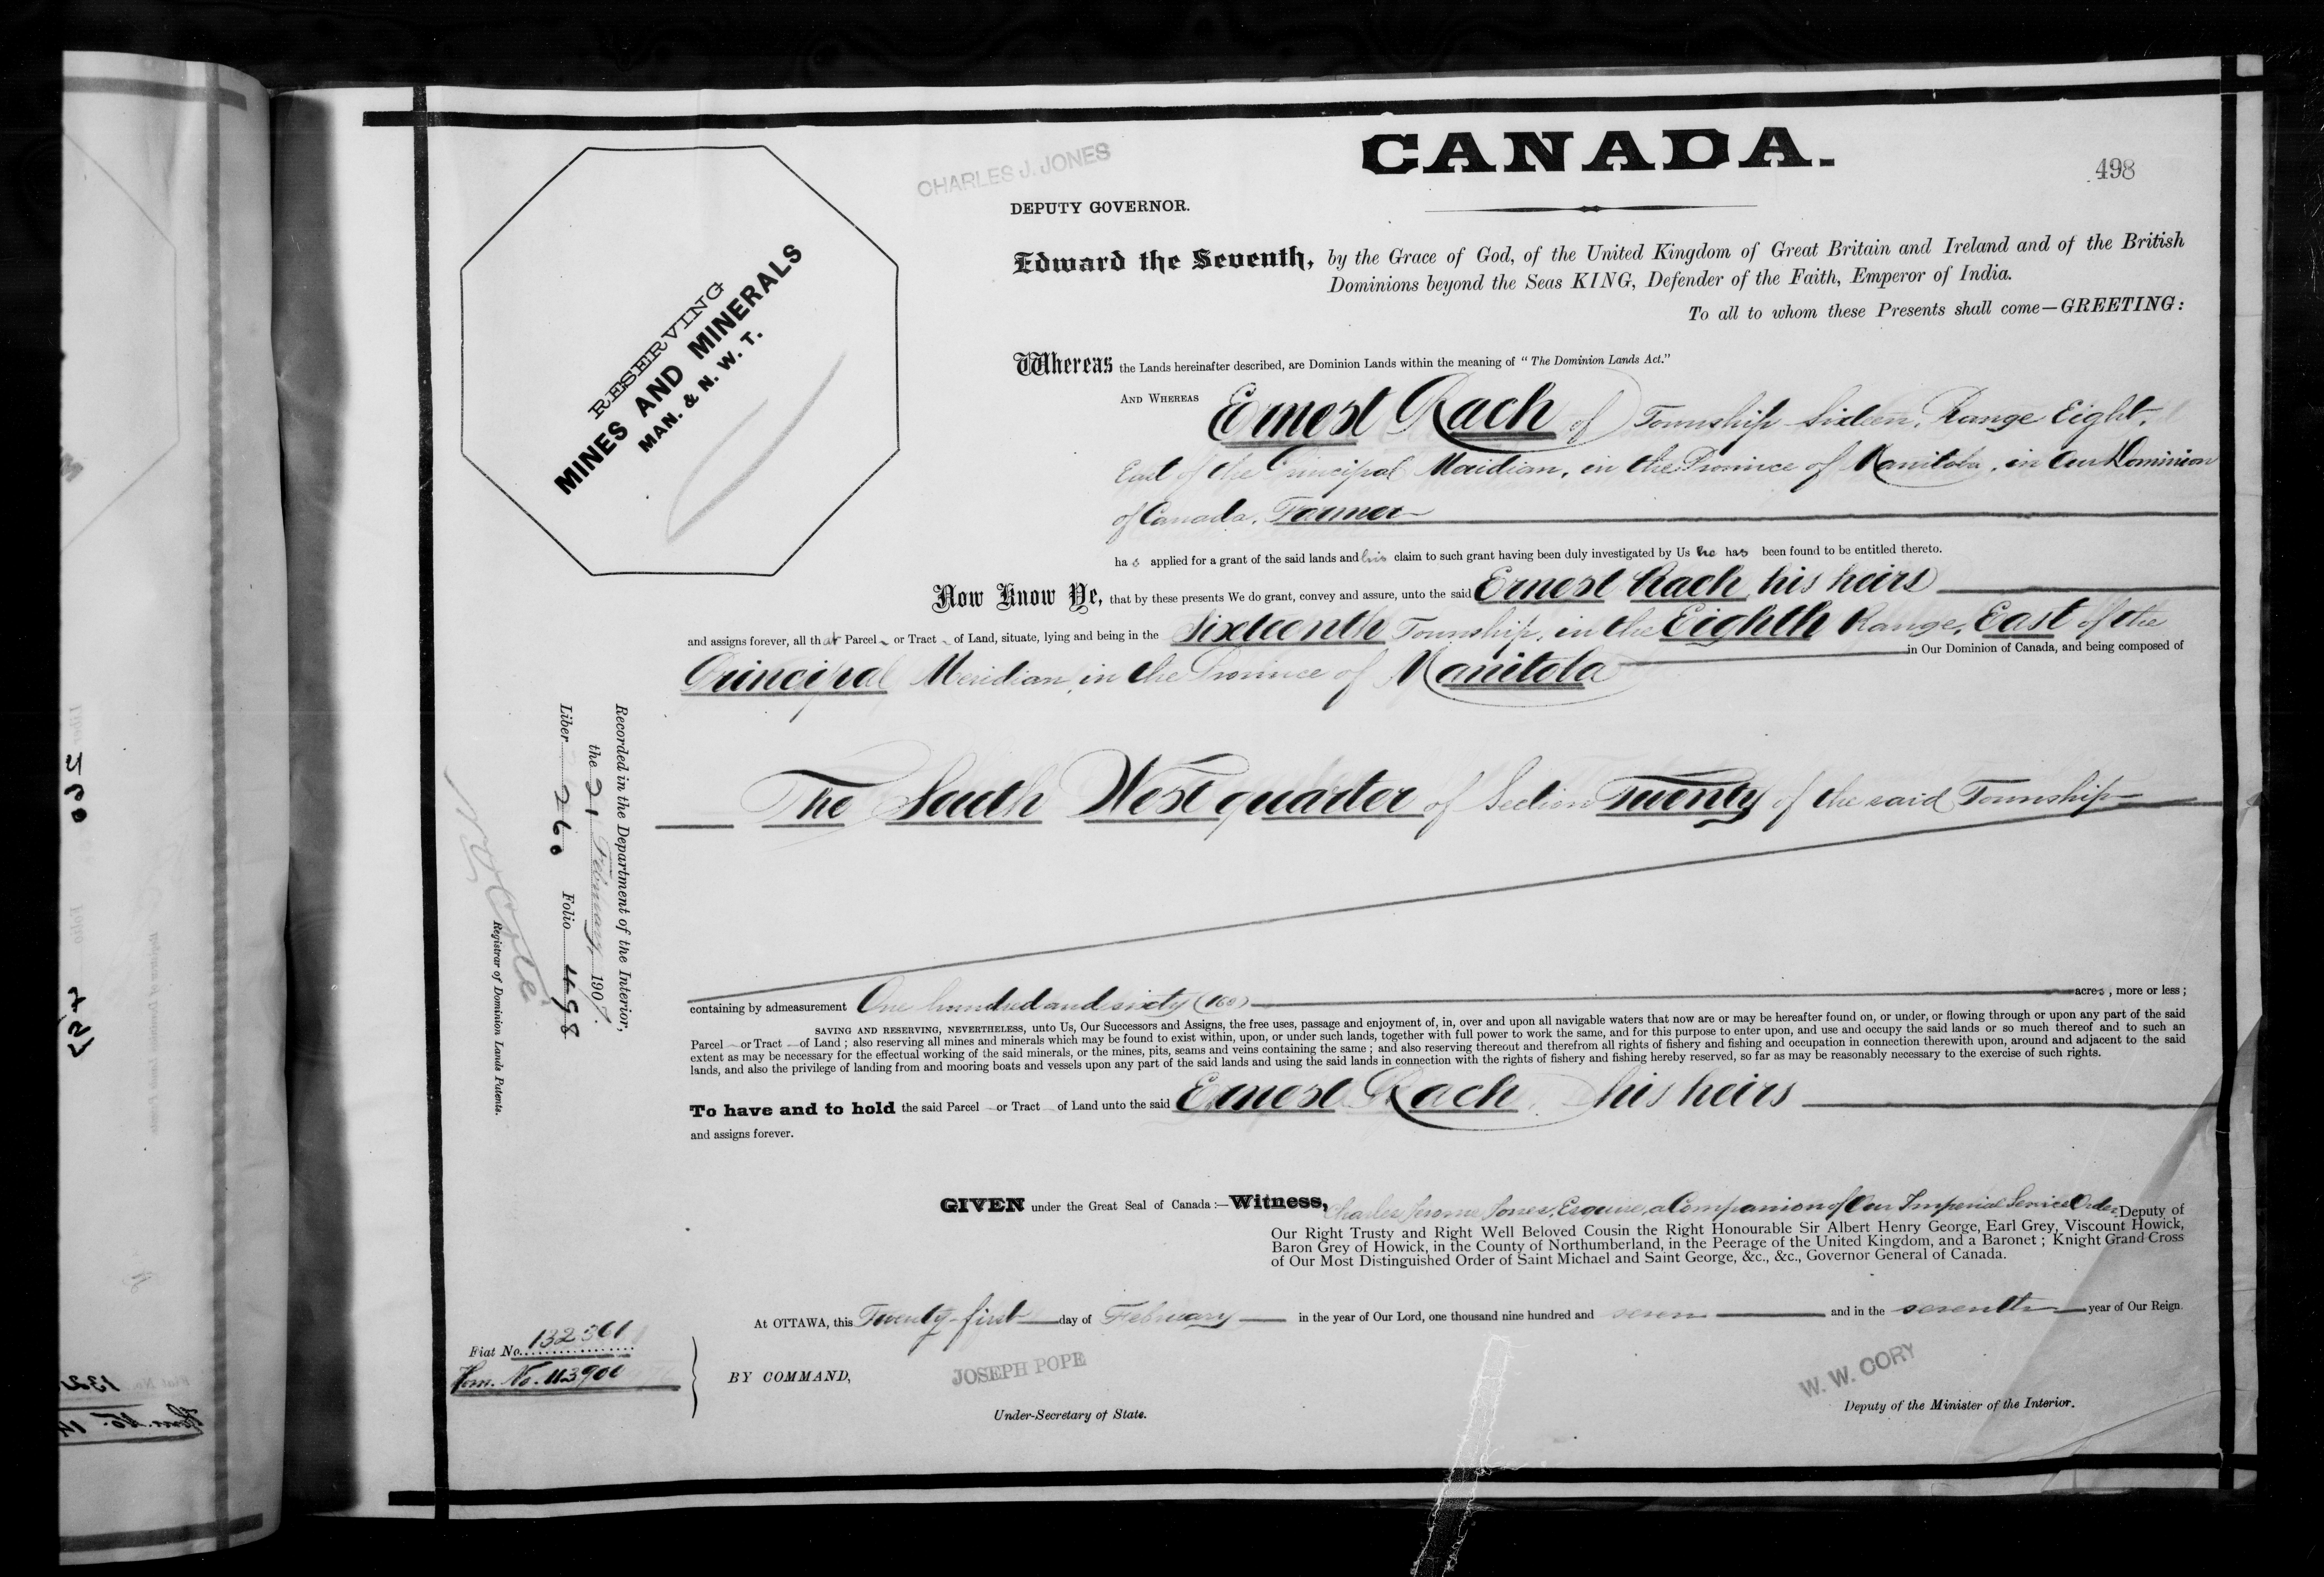 CANADA.
498
CHARLES J. JONES
DEPUTY GOVERNOR.
RESERVING
MINES AND MINERALS
MAN. & N. W. T.
Edward the Seventh, by the Grace of God, of the United Kingdom of Great Britain and Ireland and of the British
Dominions beyond the Seas KING, Defender of the Faith, Emperor of India.
To all to whom these Presents shall come—GREETING:
Whereas the Lands hereinafter described, are Dominion Lands within the meaning of "The Dominion Lands Act."
AND WHEREAS Ernest Rach of Township Sixteen, Range Eight,
East of the Principal Meridian, in the Province of Manitoba, in Our Dominion
of Canada, Farmer
has applied for a grant of the said lands and his claim to such grant having been duly investigated by Us he has been found to be entitled thereto.
Now Know Ye, that by these presents We do grant, convey and assure, unto the said Ernest Rach, his heirs
and assigns forever, all that Parcel or Tract of Land, situate, lying and being in the Sixteenth Township, in the Eighth Range, East of the
Principal Meridian, in the Province of Manitoba in Our Dominion of Canada, and being composed of
The South West quarter of Section Twenty of the said Township
containing by admeasurement One hundred and sixty (160) acres, more or less;
SAVING AND RESERVING, NEVERTHELESS, unto Us, Our Successors and Assigns, the free uses, passage and enjoyment of, in, over and upon all navigable waters that now are or may be hereafter found on, or under, or flowing through or upon any part of the said
Parcel or Tract of Land; also reserving all mines and minerals which may be found to exist within, upon, or under such lands, together with full power to work the same, and for this purpose to enter upon, and use and occupy the said lands or so much thereof and to such an
extent as may be necessary for the effectual working of the said minerals, or the mines, pits, seams and veins containing the same; and also reserving thereout and therefrom all rights of fishery and fishing and occupation in connection therewith upon, around and adjacent to the said
lands, and also the privilege of landing from and mooring boats and vessels upon any part of the said lands and using the said lands in connection with the rights of fishery and fishing hereby reserved, so far as may be reasonably necessary to the exercise of such rights.
To have and to hold the said Parcel or Tract of Land unto the said Ernest Rach, his heirs
and assigns forever.
Recorded in the Department of the Interior,
the 21 February 1907.
Liber 260 Folio 498
Registrar of Dominion Lands Patents.
GIVEN under the Great Seal of Canada:—Witness, Charles Jerome Jones, Esquire, a Companion of Our Imperial Service Order, Deputy of
Our Right Trusty and Right Well Beloved Cousin the Right Honourable Sir Albert Henry George, Earl Grey, Viscount Howick,
Baron Grey of Howick, in the County of Northumberland, in the Peerage of the United Kingdom, and a Baronet; Knight Grand Cross
of Our Most Distinguished Order of Saint Michael and Saint George, &c., &c., Governor General of Canada.
At OTTAWA, this Twenty-first day of February in the year of Our Lord, one thousand nine hundred and seven and in the seventh year of Our Reign.
Fiat No. 132361
Hom. No. 113900
BY COMMAND,
JOSEPH POPE
Under-Secretary of State.
W. W. CORY
Deputy of the Minister of the Interior.